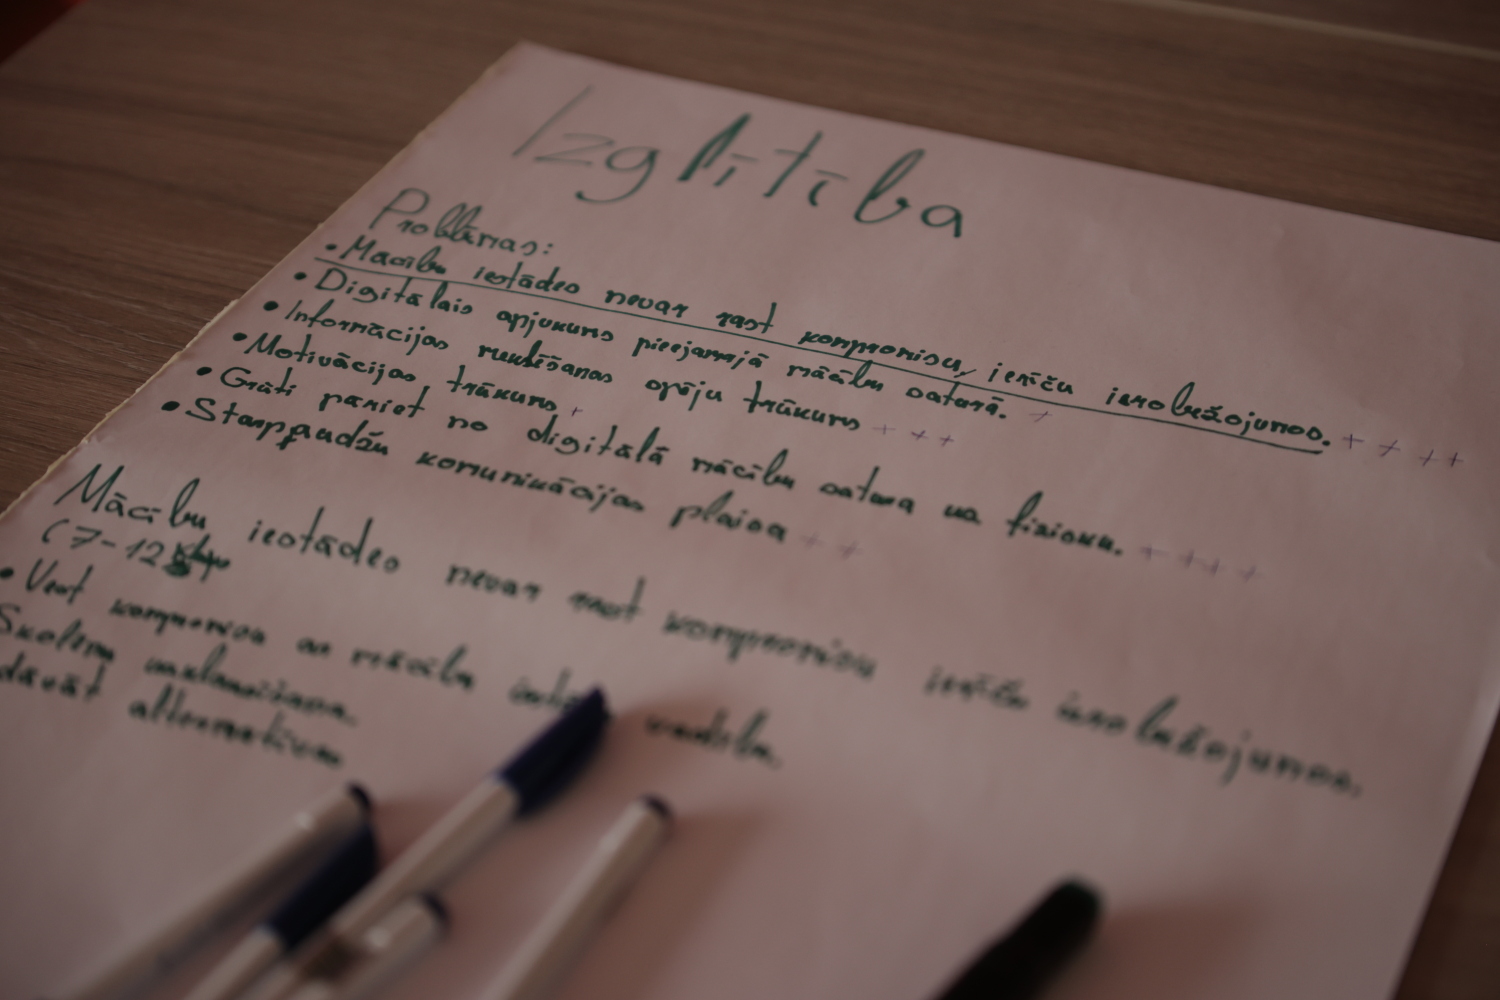 Izglītība
Problēmas:
• Mācību iestādes nevar rast kompromisu, ierīču ierobežojumos. + + + +
• Digitālais apjukums pieejamajā mācību saturā. +
• Informācijas meklēšanas spēju trūkums + + +
• Motivācijas trūkums +
• Grūti pāriet no digitālā mācību satura uz fizisku. + + + +
• Starppaudžu komunikācijas plaisa + +
Mācību iestādes nevar rast kompromisu ierīču ierobežojumos.
(7-12
• Veot kompromisu ar mācību
Skolēnu
dāvāt alternatīvu